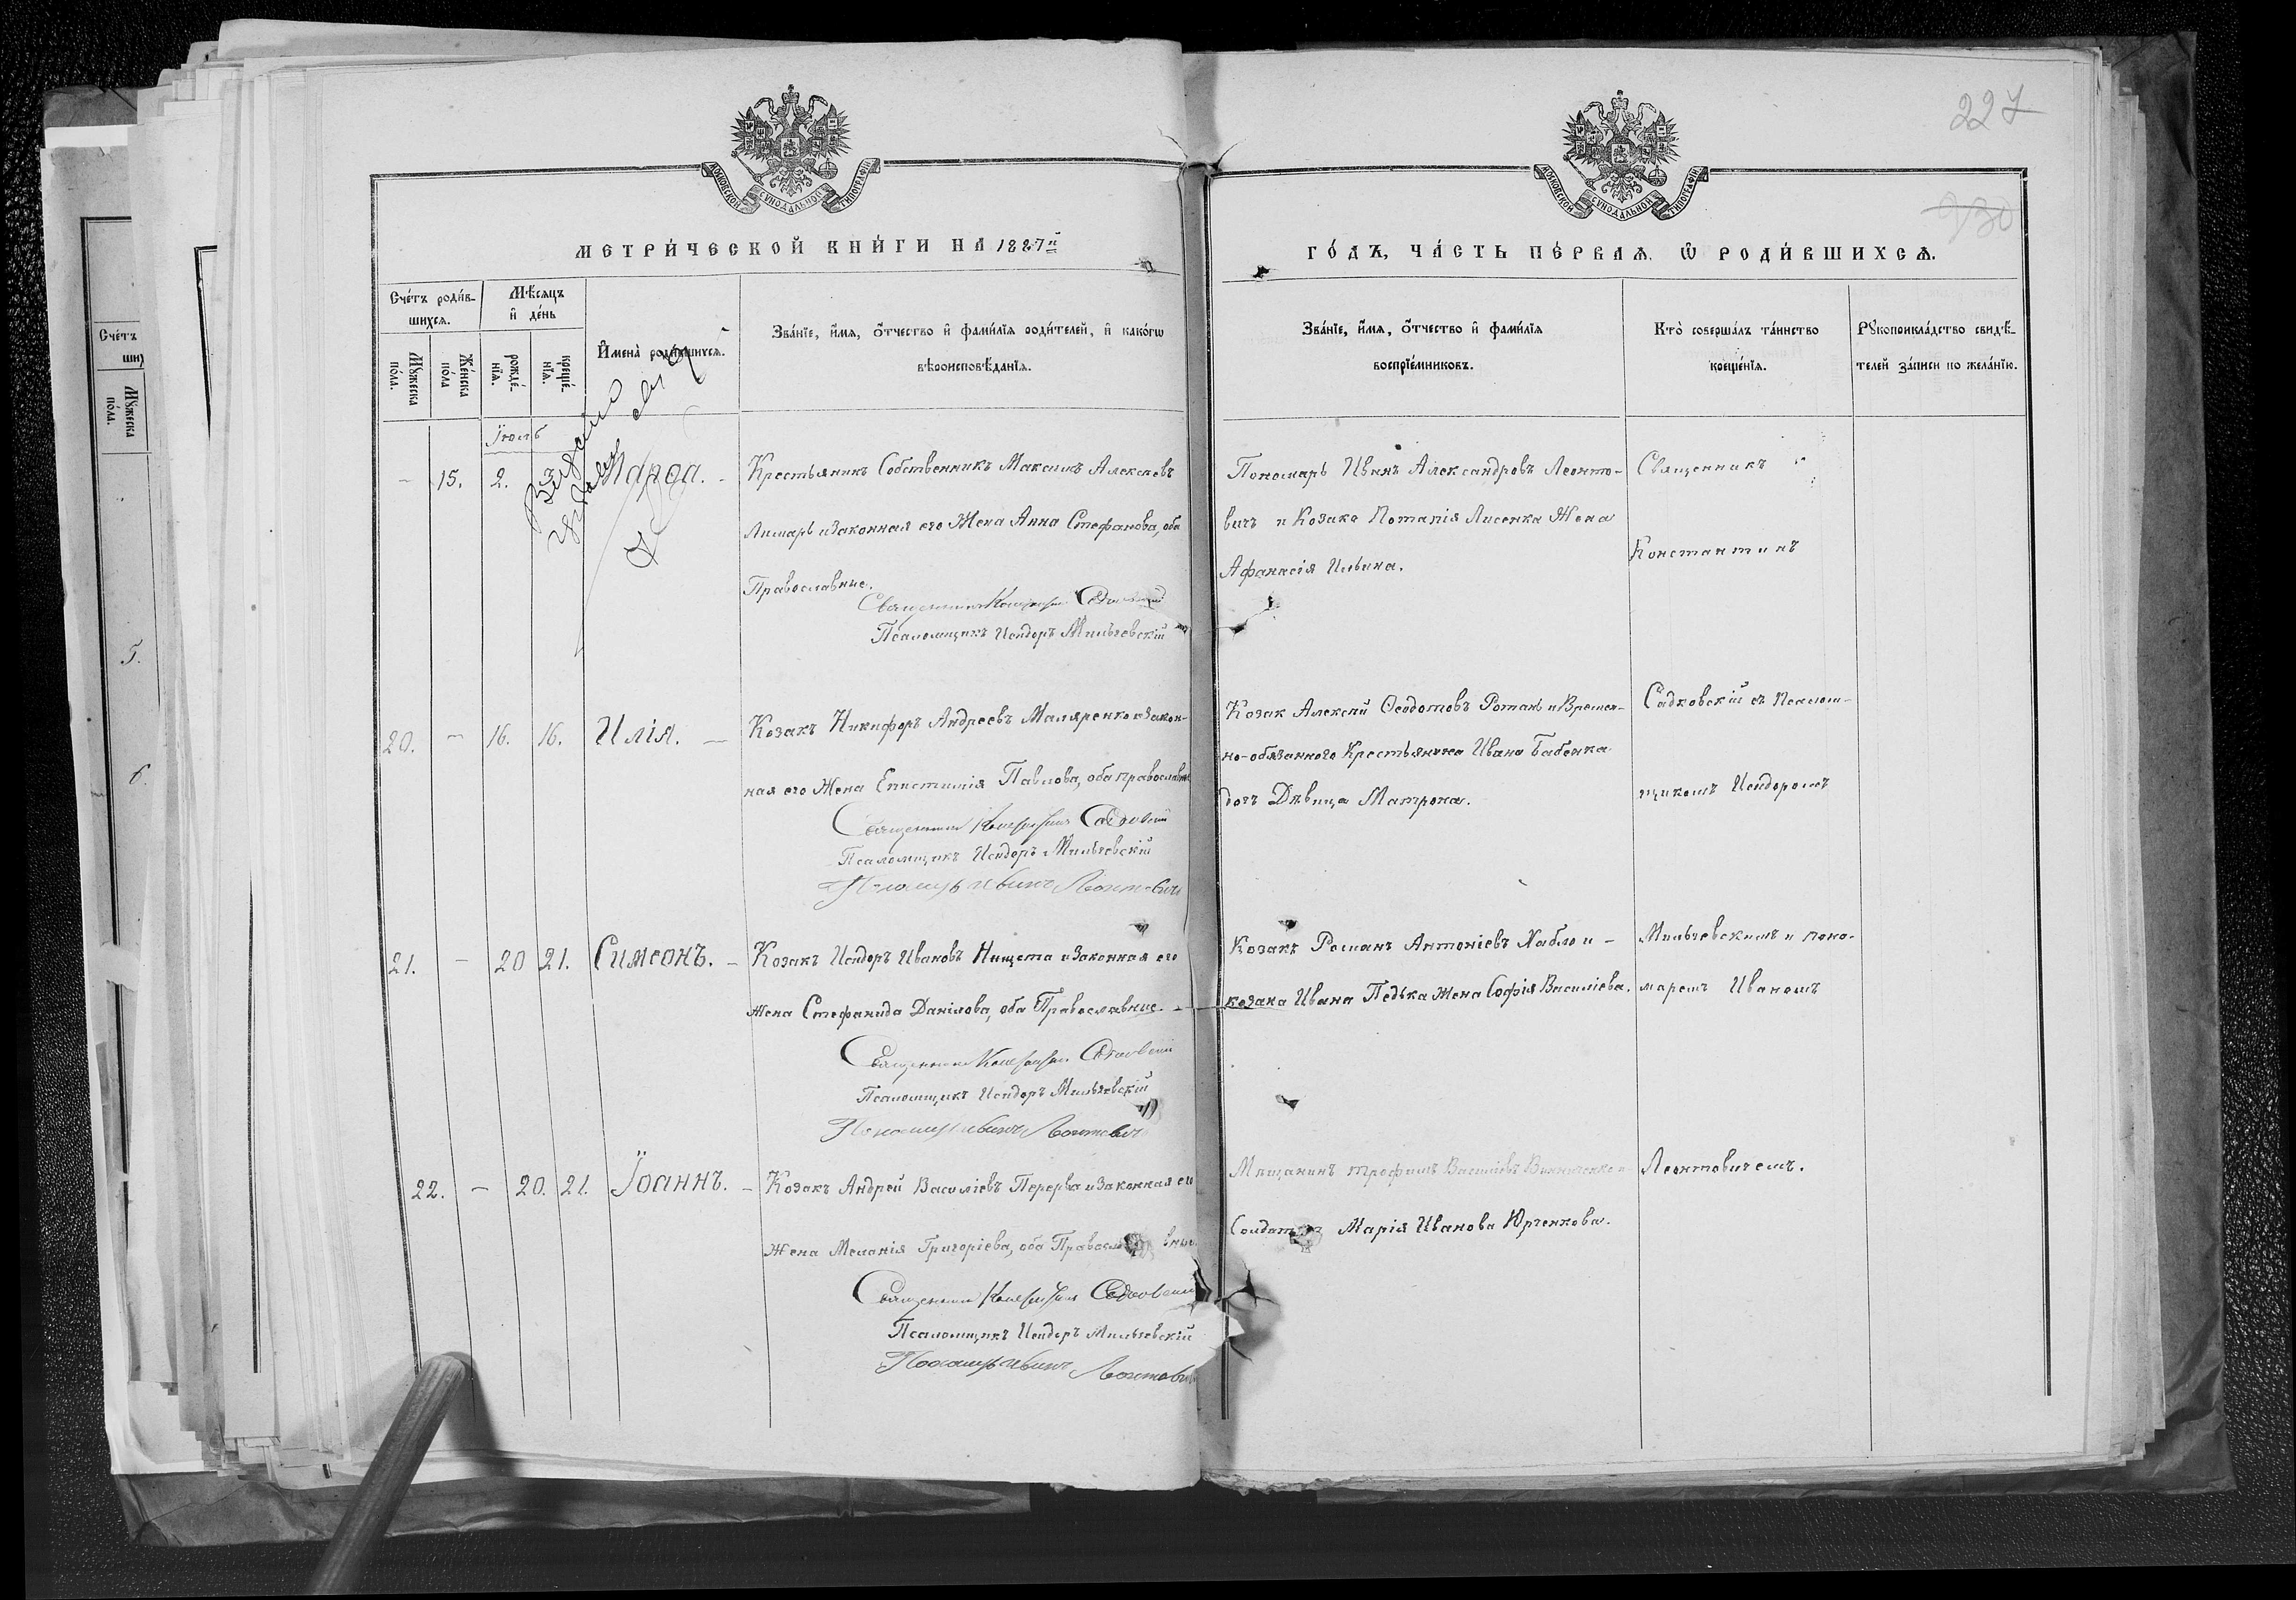 227
930
МОСКОВСКОЙ СѴНОДАЛЬНОЙ ТИПОГРАФІИ
МОСКОВСКОЙ СѴНОДАЛЬНОЙ ТИПОГРАФІИ
МЕТРИ́ЧЕСКОЙ КНИ́ГИ НА 1887й
ГО́ДЪ, ЧА́СТЬ ПЕ́РВАѦ, Ѡ РОДИ́ВШИХСѦ.
Сче́тъ роди́в-
шихсѧ.
Мѣ́сѧцъ
и҆ де́нь
Мꙋ́жеска
по́ла.
Же́нска
по́ла
рожде́-
нїѧ.
креще́-
нїѧ.
И҆мена̀ роди́вшихсѧ.
Зва́нїе, и҆́мѧ, о҆́тчество и҆ фами́лїѧ роди́телей, и҆ како́гѡ
вѣроисповѣ́данїѧ.
Зва́нїе, и҆́мѧ, о҆́тчество и҆ фами́лїѧ
воспрїе́мниковъ.
Кто̀ соверша́лъ та́инство
креще́нїѧ.
Рꙋкоприкла́дство свидѣ́-
телей за́писи по жела́нїю.
Счетъ
Мꙋ́жеска
по́ла.
5.
6.
Іюль
– 15. 2. 3. Марѳа. –
Крестьянинъ Собственникъ Максимъ Алексѣевъ
Лимарь и законная его Жена Анна Стефанова, оба
Православные.
Священникъ Константинъ Садковскій
Псаломщикъ Исидоръ Мильчевскій
Пономарь Иванъ Александровъ Леонто-
вичъ и Козака Потапія Лисенка Жена
Афанасія Ильина.
Священникъ
Константинъ
20. – 16. 16. Илія. –
Козакъ Никифоръ Андреевъ Маляренко и Закон-
ная его Жена Епистимія Павлова, оба православн
Священникъ Константинъ Садковскій
Псаломщикъ Исидоръ Мильчевскій
Пономарь Иванъ Леонтовичъ
Козак Алексѣй Ѳеодотовъ Ротань и Времен-
но-обязанного Крестьянина Ивана Бабенка
дочь Дѣвица Матрона.
Садковскій съ Псалом-
щикомъ Исидоромъ
21. – 20 21. Симеонъ. –
Козакъ Исидоръ Ивановъ Нищета и Законная его
жена Стефанида Данілова, оба Православные. –
Священникъ Константинъ Садковскій
Псаломщикъ Исидоръ Мильчевскій
Пономарь Иванъ Леонтовичъ
Козакъ Романъ Антоніевъ Хабло и –
козака Ивана Педька жена Софія Василіева.
Мильчевскимъ и поно-
маремъ Иваномъ
22. – 20. 21. Іоаннъ. –
Козакъ Андрей Василіевъ Перерва и Законная его
Жена Меланія Григоріева, оба Православные.
Священникъ Константинъ Садковскій
Псаломщикъ Исидоръ Мильчевскій
Пономарь Иванъ Леонтович
Мѣщанинъ Трофимъ Василіевъ
Марія Иванова Юрченкова.
Леонтовичемъ.